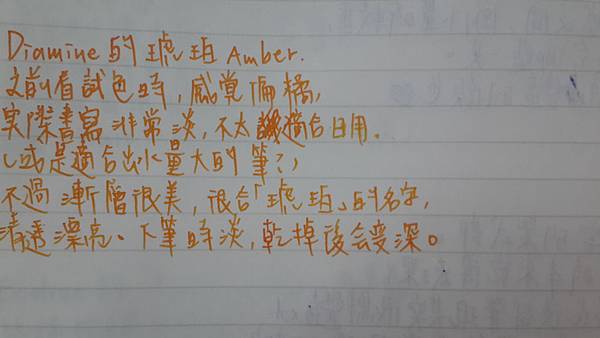 Diamine 的琥珀 Amber.
之前看試色時，感覺偏橘，
實際書寫非常淡，不太適合日用。
（或是適合出水量大的筆？）
不過漸層很美，很合「琥珀」的名字，
清透漂亮。下筆時淡，乾掉後會變深。